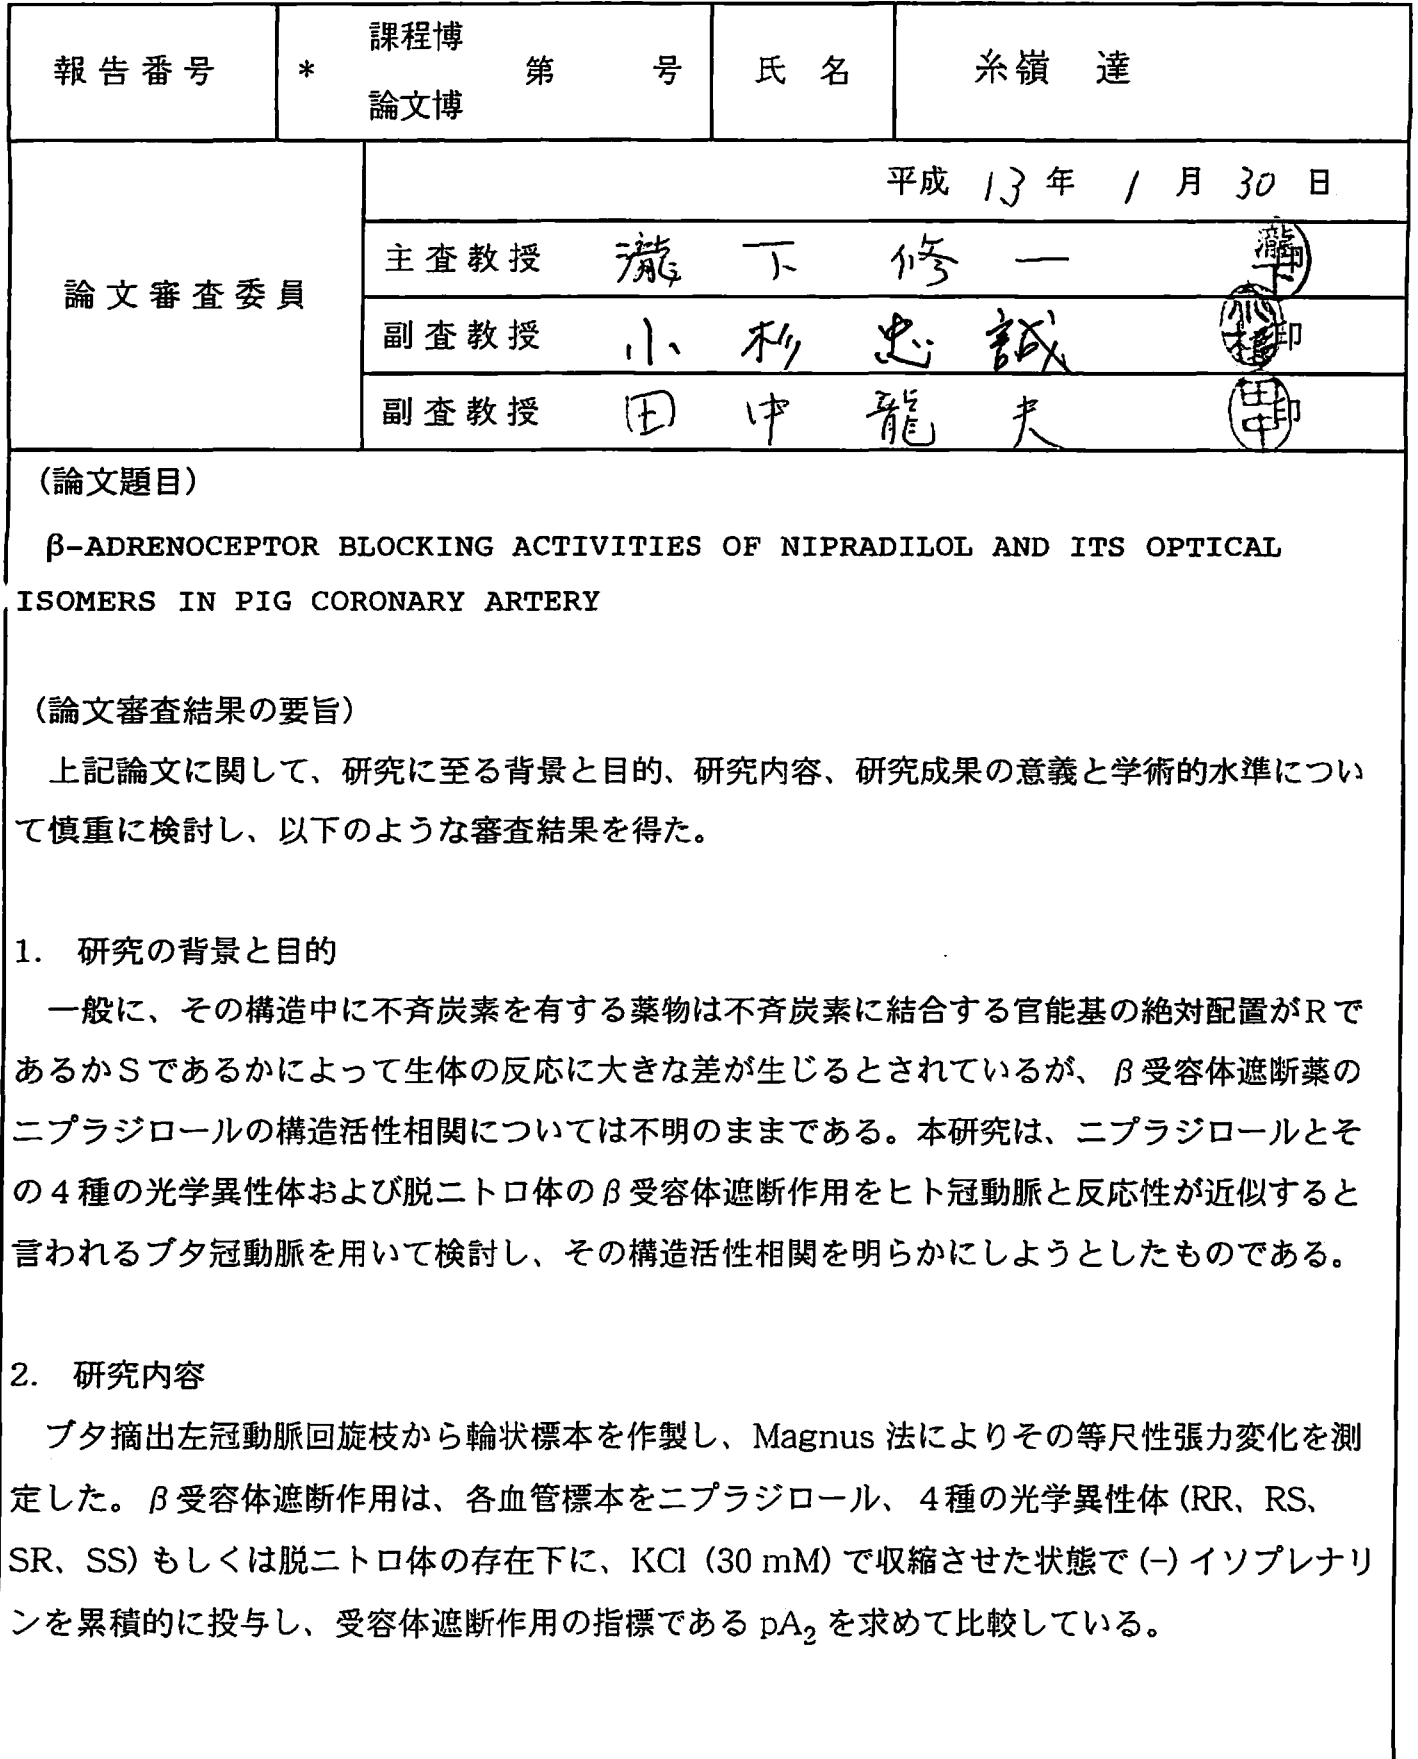 報告番号 * 課程博 論文博 第 号 氏名 糸嶺 達
平成 13 年 1 月 30 日
論文審査委員
主査教授 瀧下 修一 印
副査教授 小杉 忠誠 印
副査教授 田中 龍夫 印
（論文題目）
β-ADRENOCEPTOR BLOCKING ACTIVITIES OF NIPRADILOL AND ITS OPTICAL
ISOMERS IN PIG CORONARY ARTERY
（論文審査結果の要旨）
上記論文に関して、研究に至る背景と目的、研究内容、研究成果の意義と学術的水準につい
て慎重に検討し、以下のような審査結果を得た。
1. 研究の背景と目的
一般に、その構造中に不斉炭素を有する薬物は不斉炭素に結合する官能基の絶対配置がRで
あるかSであるかによって生体の反応に大きな差が生じるとされているが、β受容体遮断薬の
ニプラジロールの構造活性相関については不明のままである。本研究は、ニプラジロールとそ
の4種の光学異性体および脱ニトロ体のβ受容体遮断作用をヒト冠動脈と反応性が近似すると
言われるブタ冠動脈を用いて検討し、その構造活性相関を明らかにしようとしたものである。
2. 研究内容
ブタ摘出左冠動脈回旋枝から輪状標本を作製し、Magnus 法によりその等尺性張力変化を測
定した。β受容体遮断作用は、各血管標本をニプラジロール、4種の光学異性体 (RR、RS、
SR、SS) もしくは脱ニトロ体の存在下に、KCl (30 mM) で収縮させた状態で (-) イソプレナリ
ンを累積的に投与し、受容体遮断作用の指標である pA₂ を求めて比較している。